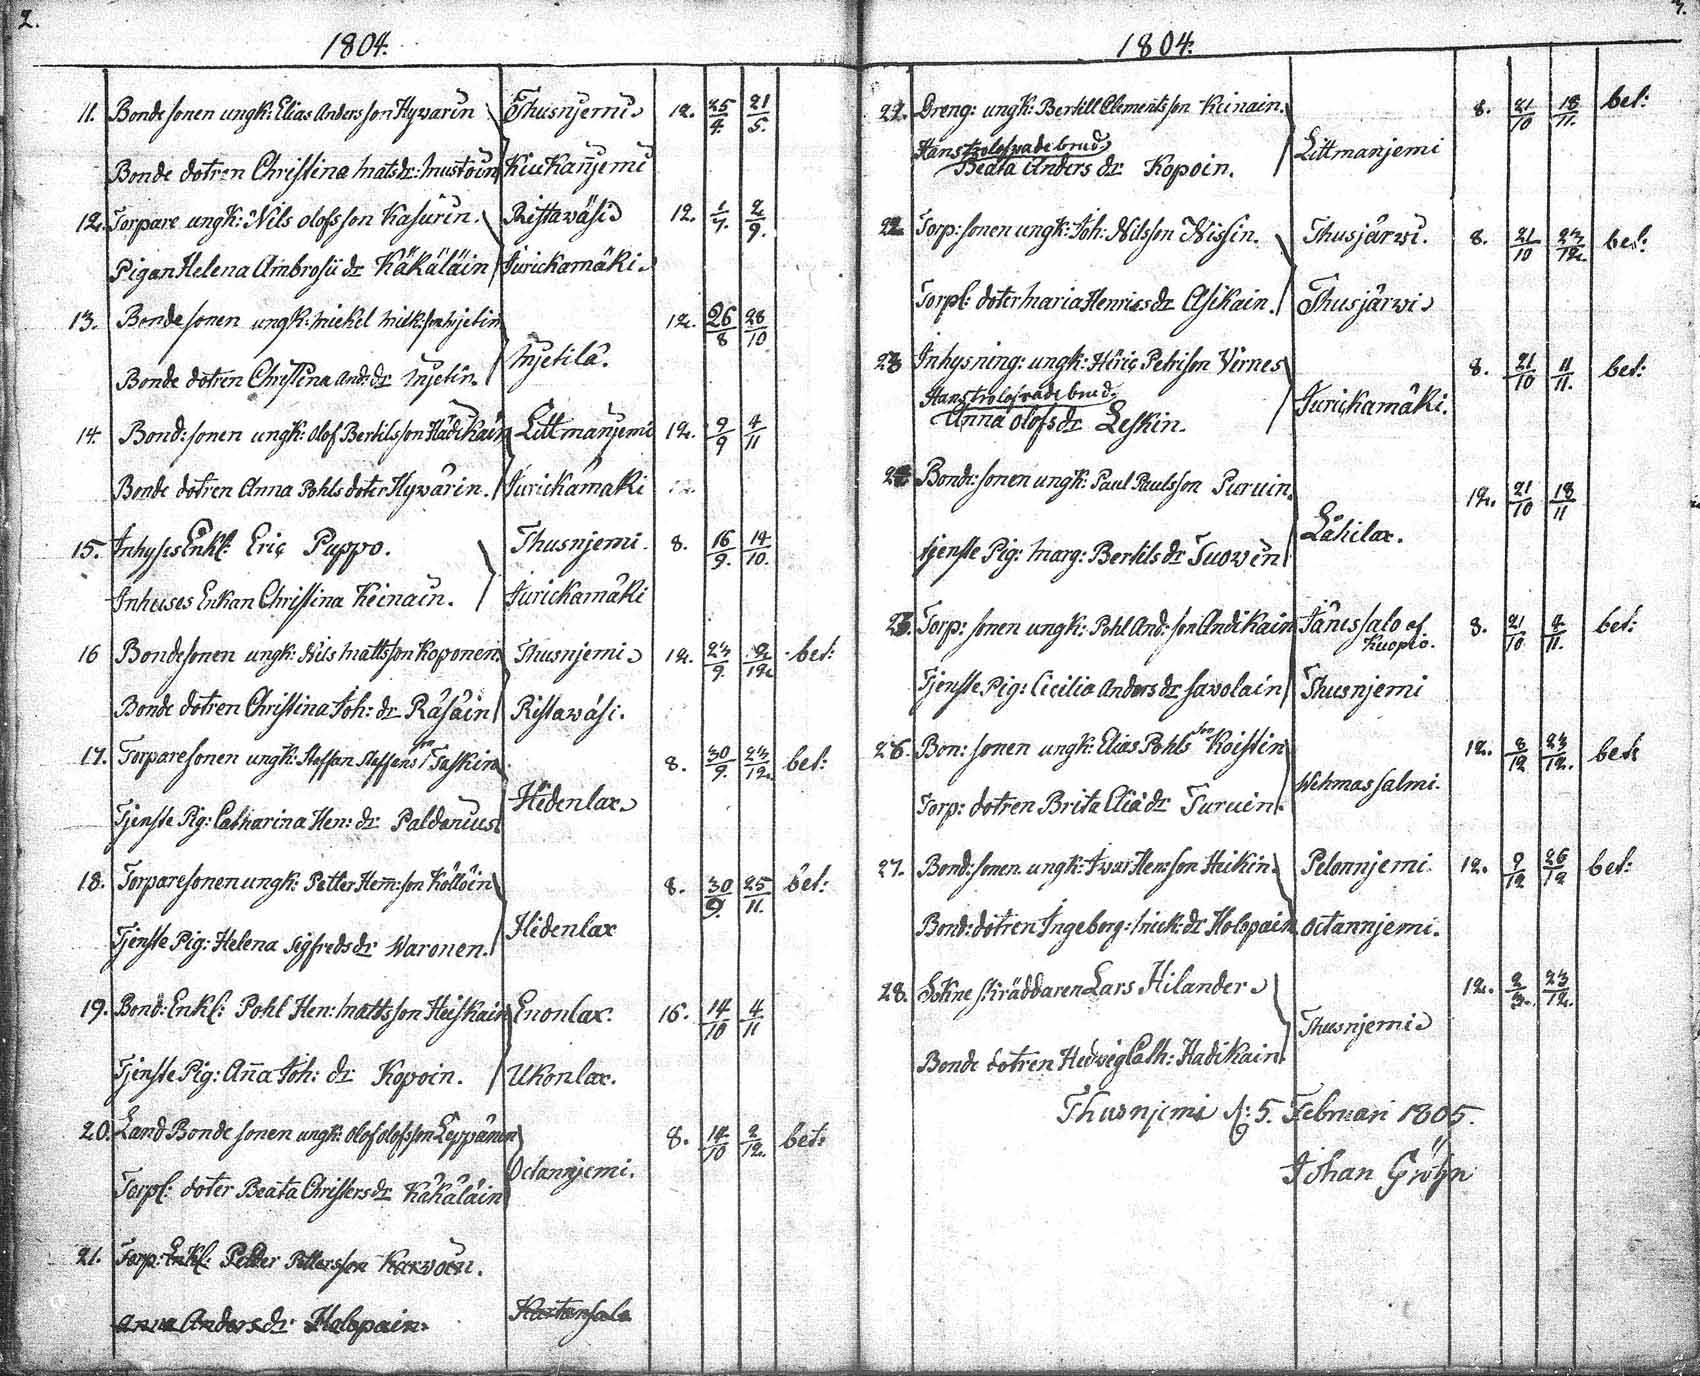 2.
1804.
11. Bonde sonen ungk: Elias Andersson Hyvärin Thusnjemi 12. 25/4. 21/5.
Bonde dotren Christina Matsdr: Mustoin Kiukanjemi
12. Torpare ungk: Nils Olofsson Kasurin. Ristawäsi 12. 1/7. 2/9.
Pigan Helena Ambrosii dr Käkäläin Jurickamäki
13. Bonde sonen ungk: Mickel Mick:son Mjetin 12. 26/8 28/10
Mjetilä.
Bonde dotren Christina And: dr Mjetin.
14. Bond: sonen ungk: Olof Bertilsson Hadikain Littmanjemi 12. 9/9 4/11
Bonde dotren Anna Pohls doter Hyvärin. Jurickamäki
15. Inhyses Enkl: Eriç Puppo. Thusnjemi. 8. 16/9. 14/10.
Inhuses Enkan Christina Keinain. Jurickamäki
16 Bondesonen ungk: Nils Mattsson Koponen Thusnjemi 12. 23/9. 2/12 bet:
Bonde dotren Christina Joh: dr Räsäin Ristawäsi.
17. Torparesonen ungk: Steffan Steffens son Taskin 8. 30/9. 23/12. bet:
Hidenlax
Tjenste Pig: Catharina Hen: dr Paldanius
18. Torparesonen ungk: Petter Hem:son Kölläin 8. 30/9. 25/11. bet:
Hidenlax
Tjenste Pig: Helena Sigfredsdr Waronen.
19. Bond: Enkl: Pohl Hen: Mattsson Heiskain Enonlax. 16. 14/10 4/11
Tjenste Pig: Aña Joh: dr Kopoin. Ukonlax.
20. Land Bonde sonen ungk: Olof Olofsson Leppänen 8. 14/10 2/12. bet:
Octannjemi.
Torpl: doter Beata Christersdr Käkäläin
21. Torp: Enkl: Petter Pettersson Karvoin.
Anna Andersdr Holopain. Kartansalo
3.
1804.
22. Dreng: ungk: Bertill Clementsson Keinain. 8. 21/10 18/11. bet:
Hans trolofvade brud Littmanjemi
Beata Anders dr Kopoin.
22 Torp: sonen ungk: Joh: Nilsson Nissin. Thusjärwi. 8. 21/10 23/12. bet:
Torpl: doter Maria Henricsdr Asikain. Thusjärwi
23 Inhysning: ungk: Heriç Petrison Virnes 8. 21/10 11/11. bet:
Hans trolofvade brud. Jurickamäki.
Anna Olofs dr Leskin.
24 Bond: sonen ungk: Paul Paulsson Puruin. 12. 21/10 18/11
Lähilax.
tjenste Pig: Marg: Bertils dr Tuovin
25. Torp: sonen ungk: Pohl And: son Andikain Jänissalo af Kuopio. 8. 21/10 4/11. bet:
Tjenste Pig: Cicilia Anders dr Savolain Thusnjemi
26. Bon: sonen ungk: Elias Pohls son Koistin 12. 8/12 23/12. bet:
Wehmassalmi.
Torp: dotren Brita Eliä dr Turuin.
27. Bond: sonen ungk: Iwar Hen:son Heikin Pelonnjemi. 12. 9/12 26/12 bet:
Bond: dotren Ingeborg: Mick: dr Holopain Octannjemi.
28. Sokne skräddaren Lars Hilander 12. 2/3. 23/12.
Thusnjemi
Bonde dotren Hedvig Cath: Hadikain.
Thusnjemi d: 5. Februari 1805.
Johan Gröhn